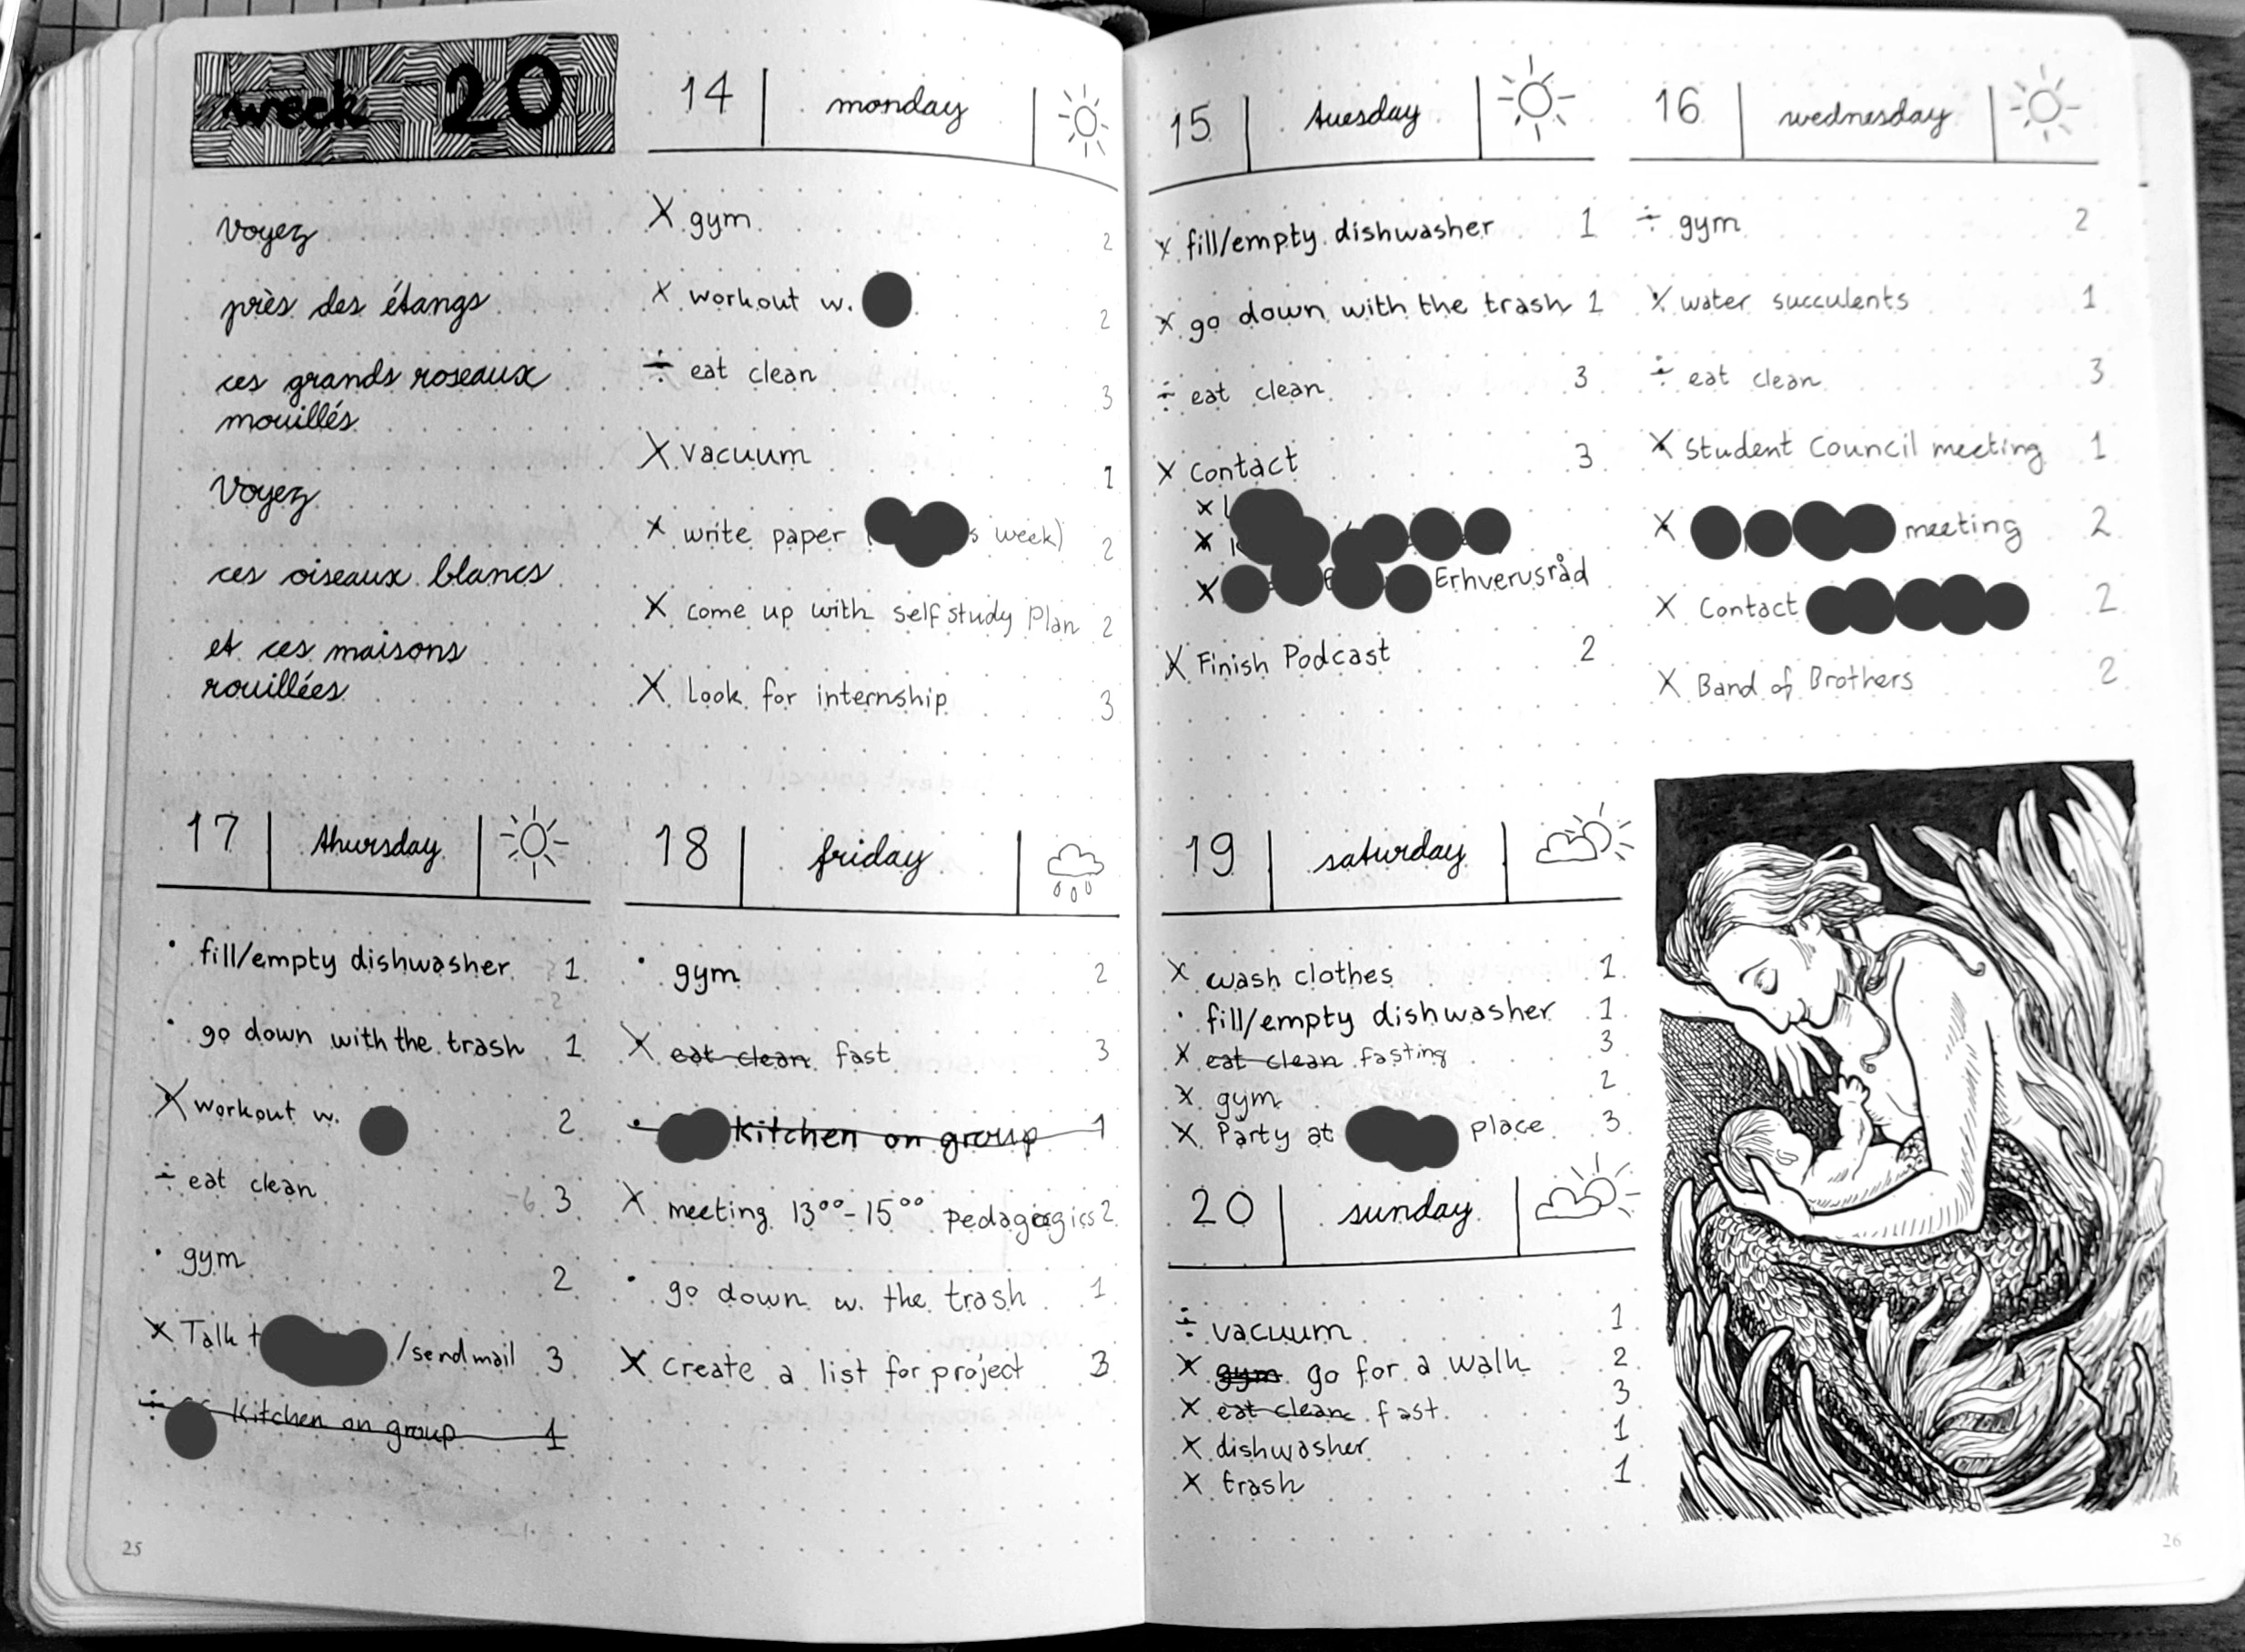 week 20
voyez
près des étangs
ces grands roseaux
mouillés
Voyez
ces oiseaux blancs
et ces maisons
rouillées
14 monday
X gym 2
X workout w. 2
÷ eat clean 3
X vacuum 1
X write paper ( s week) 2
X come up with self study Plan 2
X Look for internship 3
15 tuesday
X fill/empty dishwasher 1
X go down with the trash 1
÷ eat clean 3
X Contact 3
X
X
X Erhverusråd
X Finish Podcast 2
16 wednesday
÷ gym 2
X water succulents 1
÷ eat clean 3
X Student Council meeting 1
X meeting 2
X Contact 2
X Band of Brothers 2
17 thursday
· fill/empty dishwasher 1
-2
· go down with the trash 1
X workout w. 2
÷ eat clean -6 3
· gym 2
X Talk t /send mail 3
÷ Kitchen on group 1
18 friday
· gym 2
X eat clean fast 3
· Kitchen on group 1
X meeting 13⁰⁰-15⁰⁰ Pedagogics 2
· go down w. the trash 1
X create a list for project 3
19 saturday
X wash clothes 1
· fill/empty dishwasher 1
X eat clean fasting 3
X gym 2
X Party at place 3
20 sunday
÷ vacuum 1
X gym go for a walk 2
X eat clean fast 3
X dishwasher 1
X trash 1
25
26